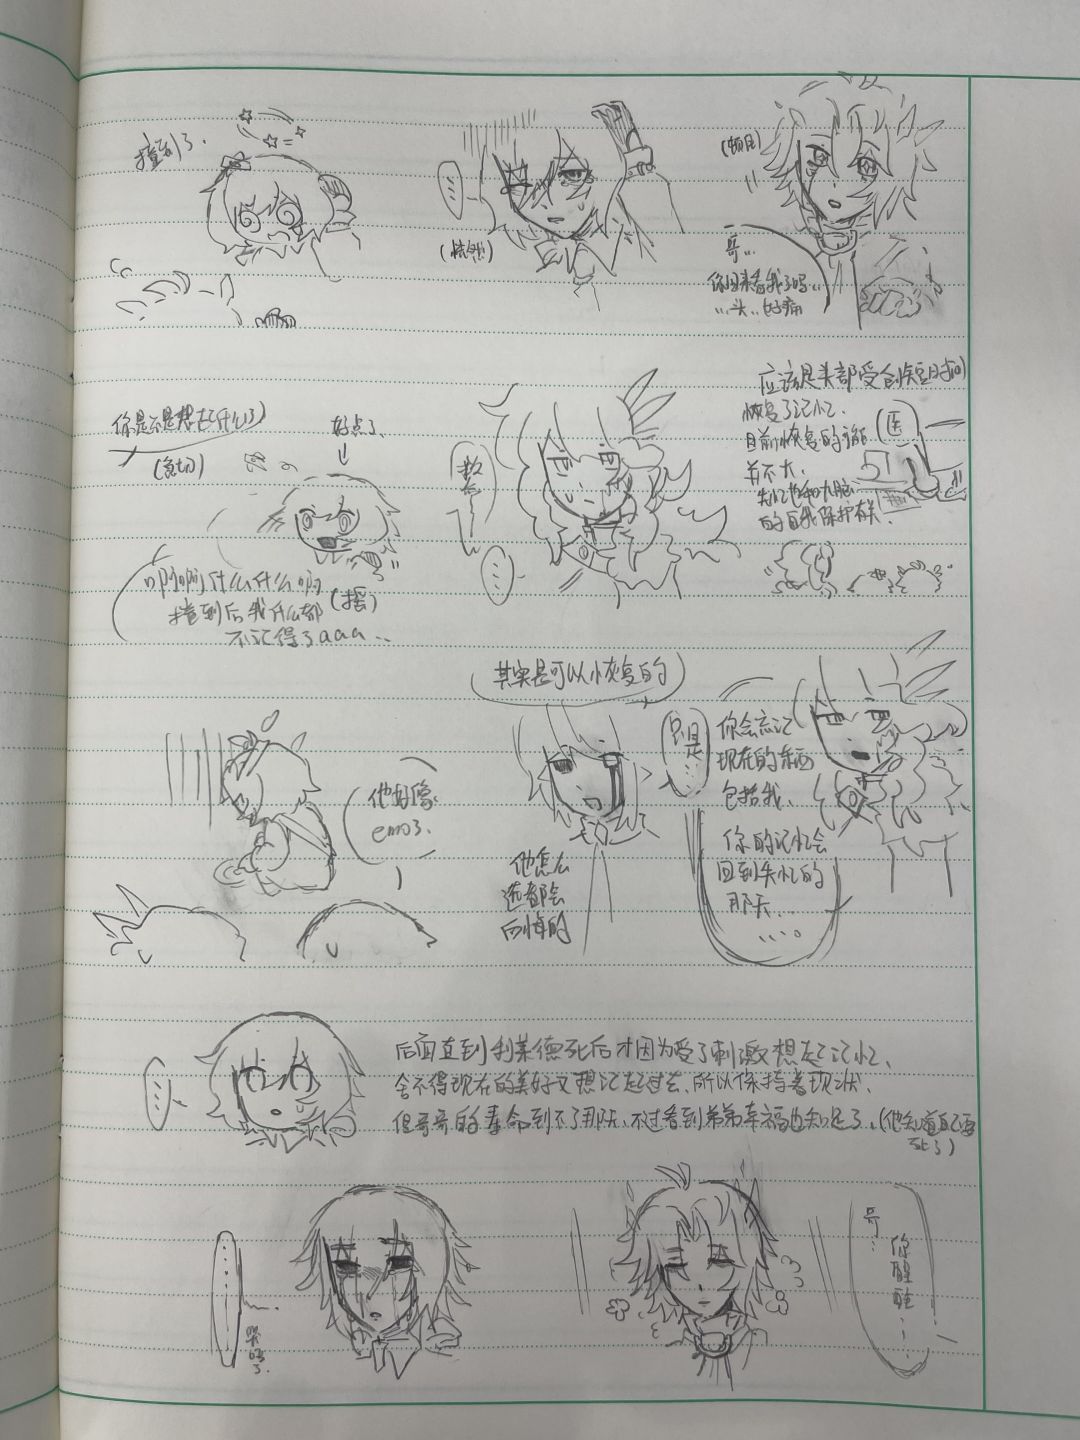 撞到了.
....
(恍然)
(顿住)
哥...
你回来看我了吗...
...头...好痛
你是不是想起什么了
(急切)
好点了
啊啊啊什么什么啊
撞到后我什么都
不记得了aaa...
(摇)
...
应该是头部受创短时间
恢复了记忆.
目前恢复的可能
并不大.
失忆也和大脑
的自我保护有关.
医
他好像
emo了.
其实是可以恢复的
只是...
你会忘记
现在的东西
包括我.
你的记忆会
回到失忆的
那天...
....。
他怎么
选都会
后悔的
...
后面直到利莱德死后才因为受了刺激想起记忆.
舍不得现在的美好又想记起过去.所以保持着现状.
但哥哥的寿命到不了那天.不过看到弟弟幸福也知足了.(他知道自己要
死了)
......
哭晕了
哥...
你醒醒...